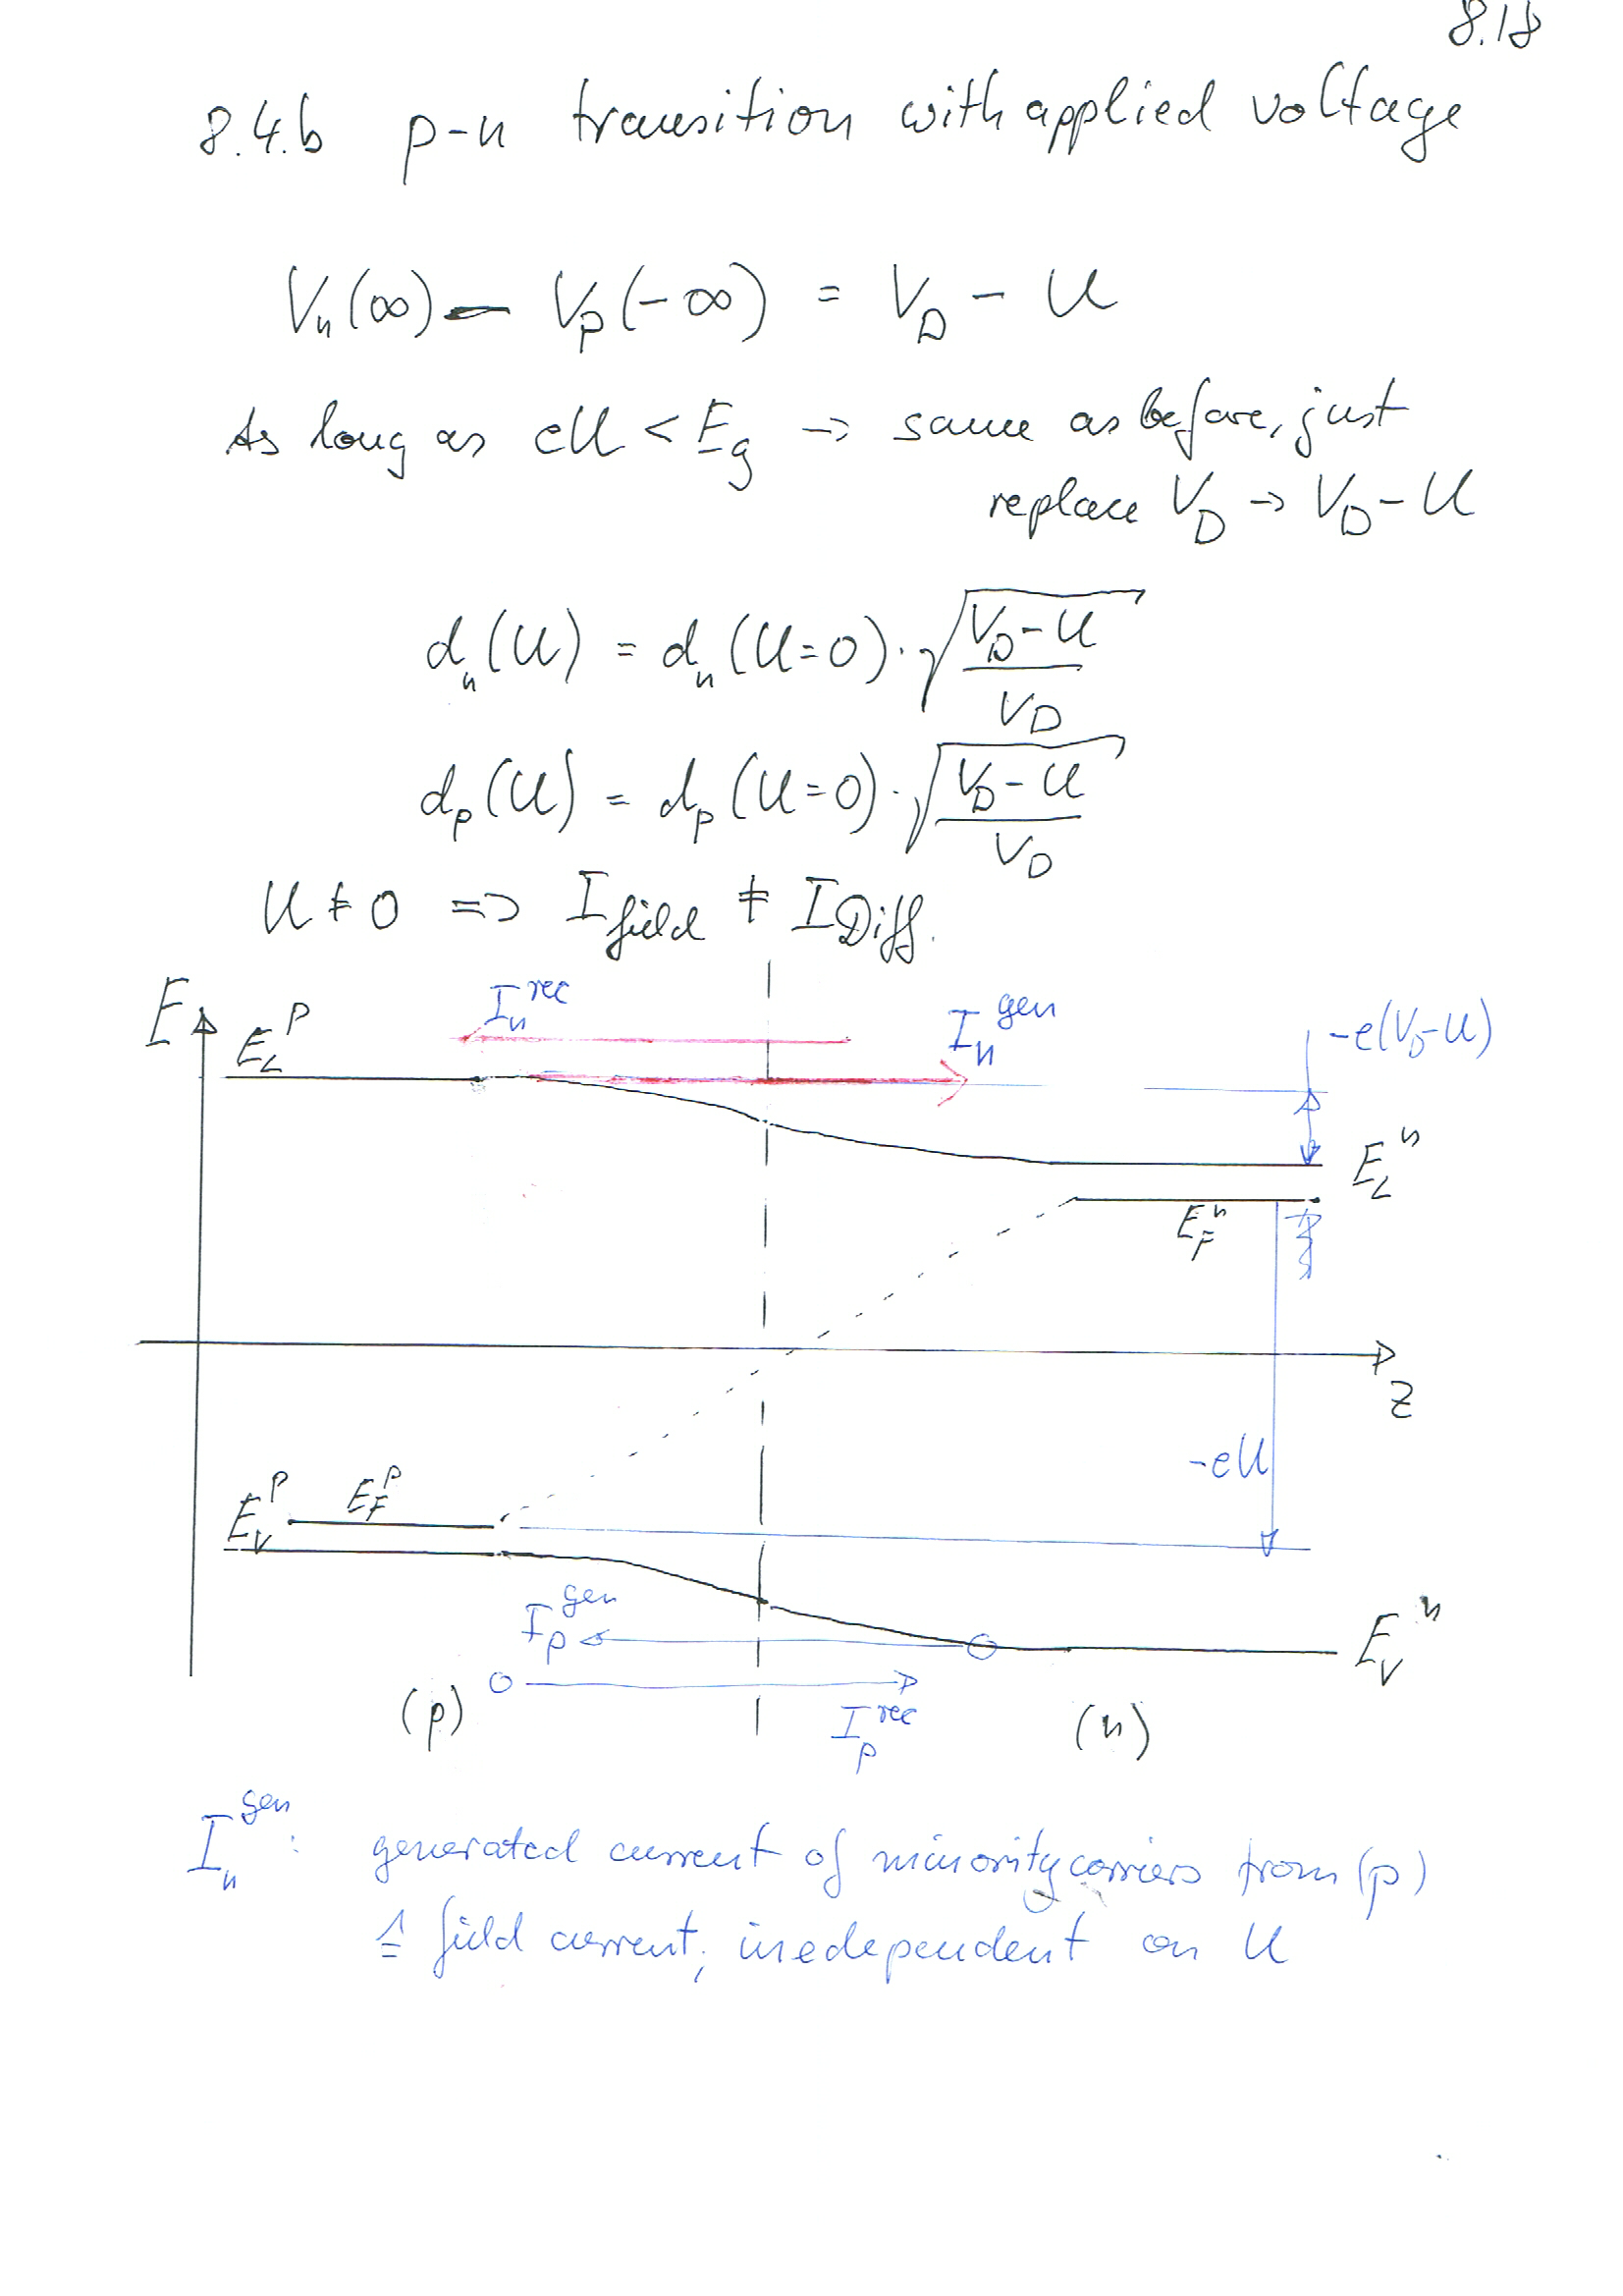 8.18
8.4.b p-n transition with applied voltage
V_n(∞) - V_p(-∞) = V_D - U
As long as eU < E_g → same as before, just
replace V_D → V_D - U
d_n(U) = d_n(U=0) · √((V_D - U)/V_D)
d_p(U) = d_p(U=0) · √((V_D - U)/V_D)
U ≠ 0 => I_field ≠ I_Diff.
E
E_L^p
I_n^rec
I_n^gen
-e(V_D-U)
E_L^n
E_F^n
z
-eU
E_V^p
E_F^p
I_p^gen
E_V^n
(p)
I_p^rec
(n)
I_n^gen : generated current of minority carriers from (p)
≙ field current, inedependent on U